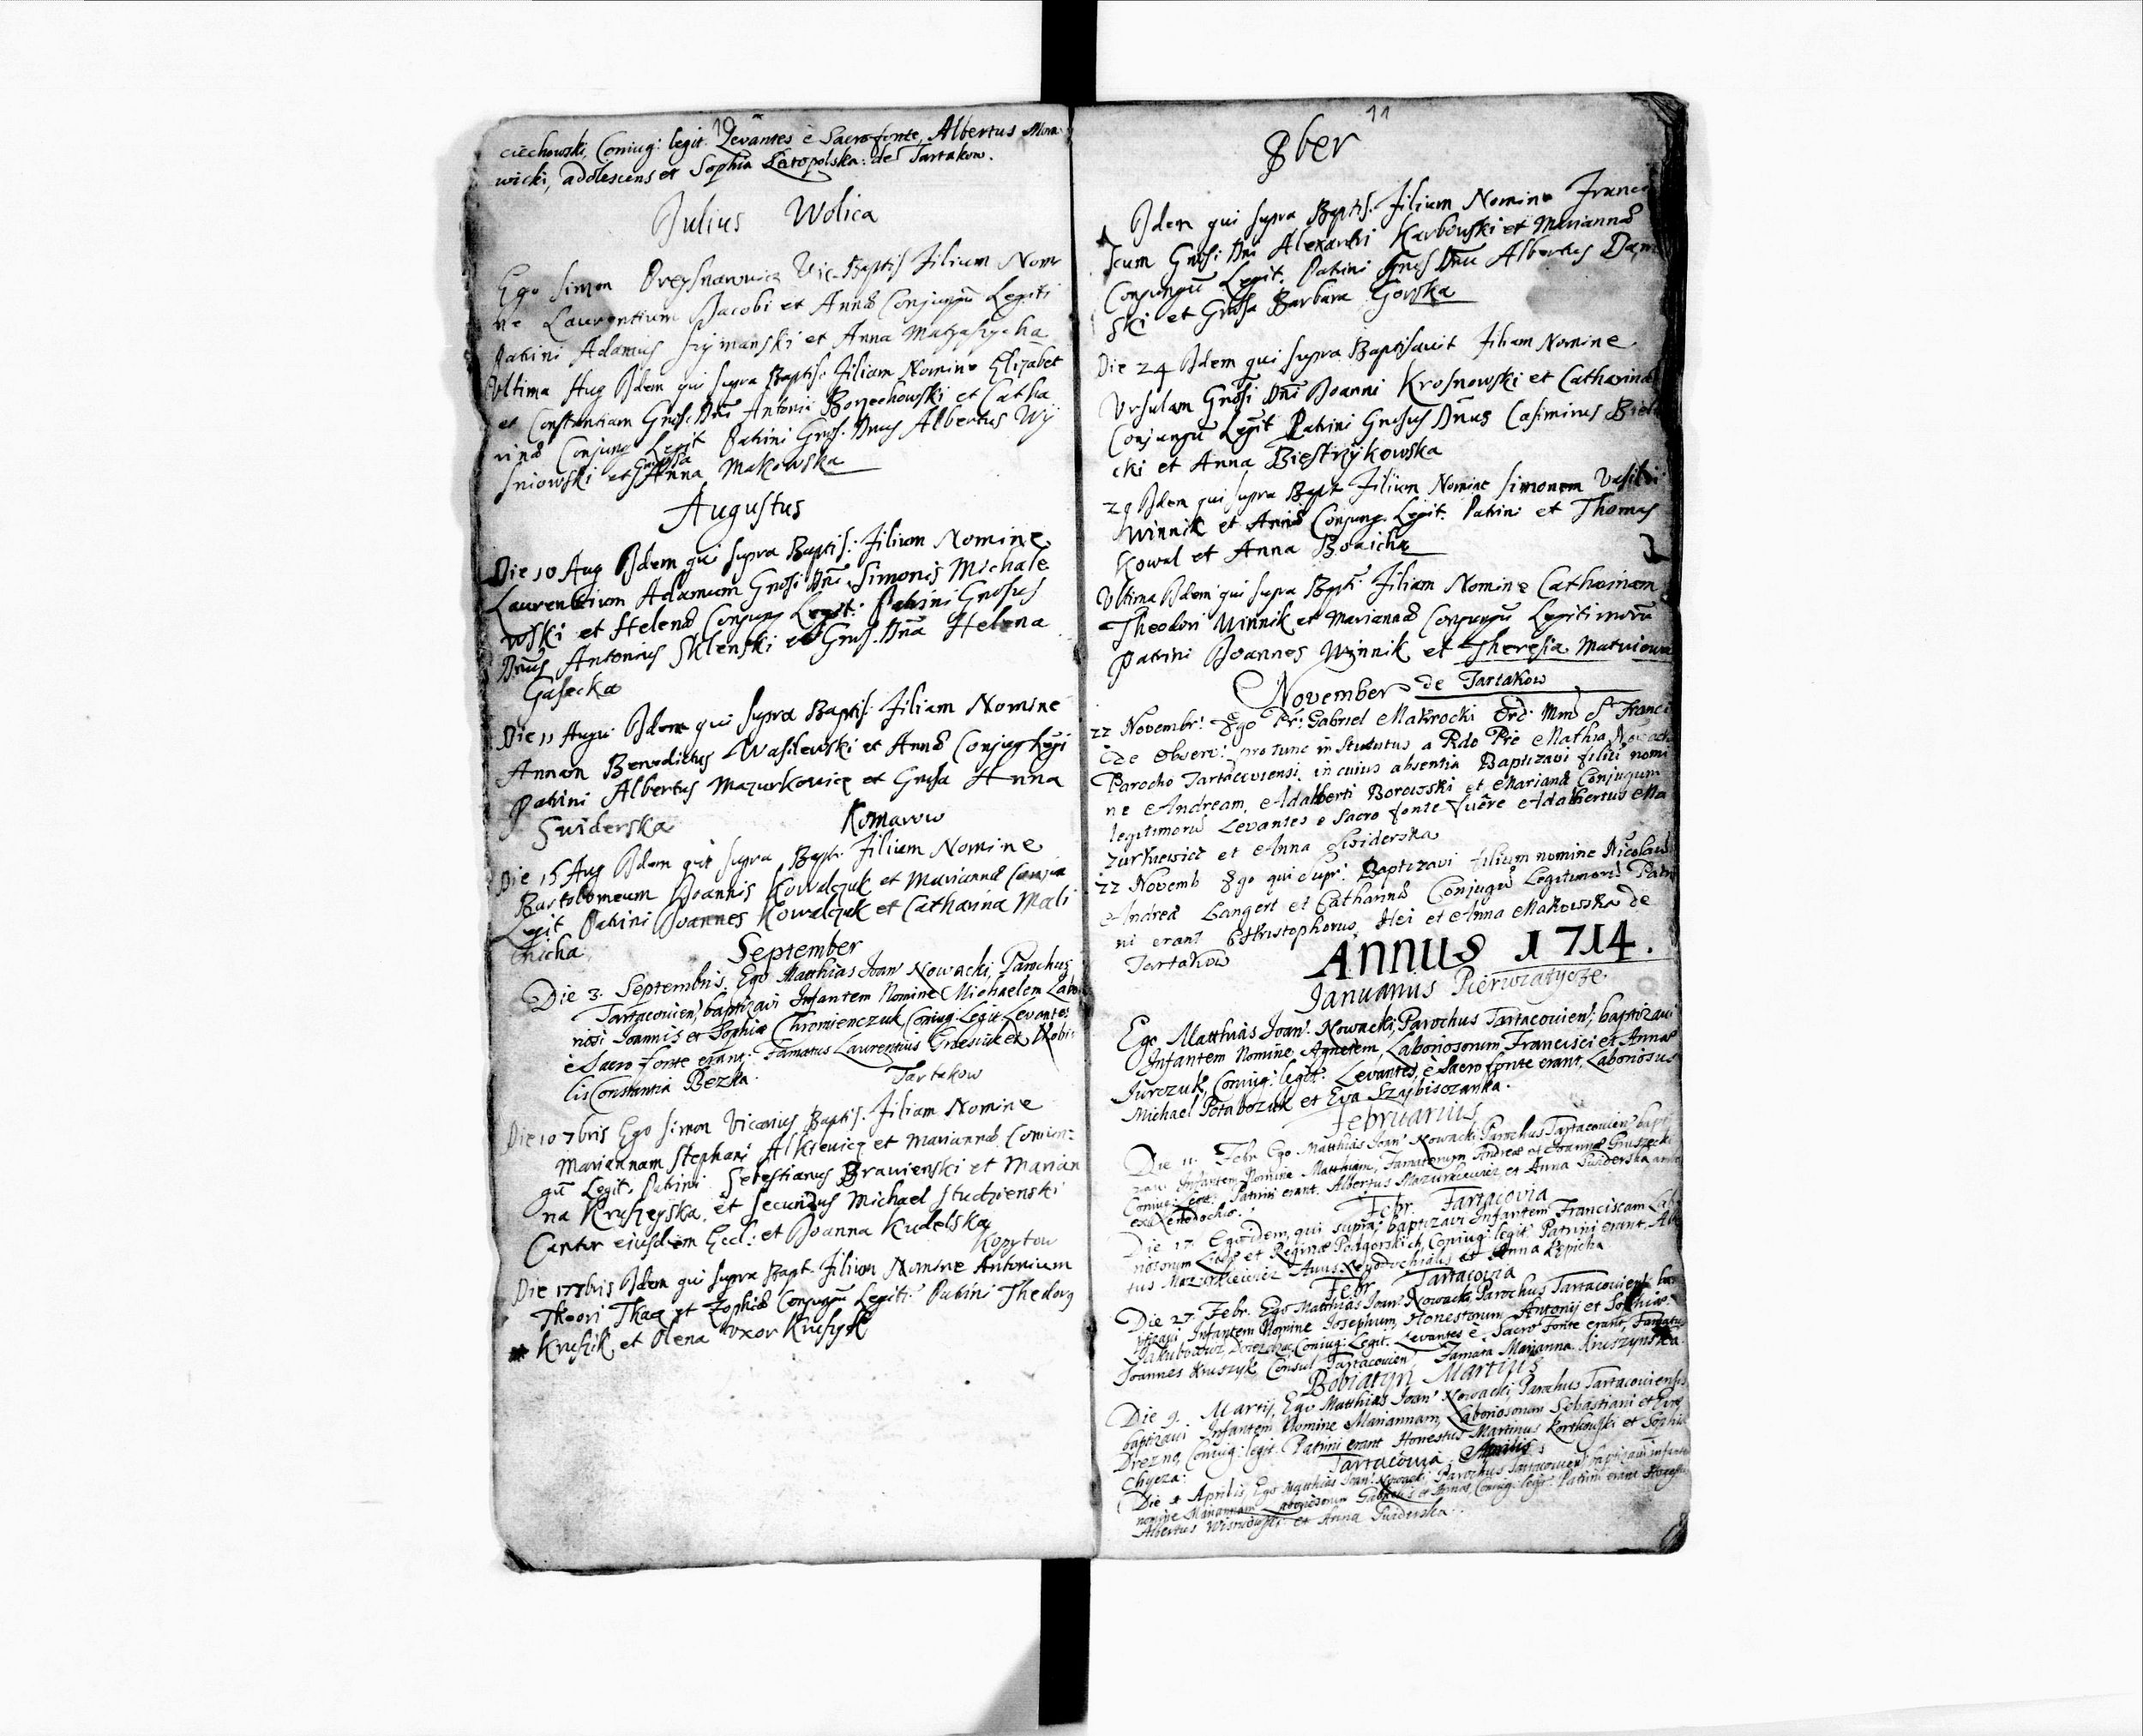 10
ciechowski, Coniug: legit. Levantes è Sacro fonte, Albertus Mora
wicki, adolescens et Sophia de Tartakow.
Julius Wolica
Ego Simon Vic. Baptis Filium Nomi
ne Laurentium Jacobi et Annæ Conjungũ Legiti
Patrini Adamus Szymanski et Anna
Ultima Aug Idem qui supra Baptis: Filiam Nomine Elizabet
et Constantiam Gnosi Dni Antonii Borzechowski et Catha
rinæ Conjung Legit Patrini Gnos. Dnus Albertus Wy
sniowski et Gnosa Anna Makowska
Augustus
Die 10 Aug Idem qui supra Baptis: Filium Nomine
Laurentium Adamum Gnosi Dni Simonis Michale
wski et Helenæ Conjung Legit: Patrini Gnosus
Dnus Antonius Sklenski et Gnos. Dna Helena
Gasecka
Die 11 Augu: Idem qui supra Baptis: Filiam Nomine
Annam Benedictus Wasilewski et Annæ Conjug Legi
Patrini Albertus Mazurkowicz et Gnosa Anna
Swiderska Komarow
Die 15 Aug Idem qui supra Bapt: Filium Nomine
Bartolomeum Joannis Kowalczuk et Mariannæ
Legit Patrini Joannes Kowalczuk et Catharina Mali
nicha
September
Die 3. Septembris, Ego Matthias Joan' Nowacki, Parochus
Tartacovien, baptizavi Infantem Nomine Michaelem Labo
riosi Joannis et Sophiæ Chromienczuk Coniug: Legit Levantes
è Sacro fonte erant: Famatus Laurentius et Nobi
lis Constantia Bezka. Tartakow
Die 10 7bris Ego Simon Vicarius Baptis. Filiam Nomine
Mariannam Stephani Alkiewicz et Mariannæ
gũ Legit. Patrini Sebestianus Brawienski et Marian
na et Secundus Michael Studzienski
Cantor eiusdem Eccl: et Joanna Kudelska
Kopytow
Die 17 7bris Idem qui supra Bapt. Filium Nomine Antonium
Tkacz et Zophiæ Conjungũ Legiti: Patrini
Kruszik et Olena uxor
11
8ber
Idem qui supra Baptis. Filium Nomine Franci
scum Gnosi Dni Alexandri Karbowski et Mariannæ
Conjungũ Legit. Patrini Gnos Dnus Albertus
ski et Gnosa Barbara Gorska
Die 24 Idem qui supra Baptisavit Filiam Nomine
Ursulam Gnosi Dni Joanni Krosnowski et Catharinæ
Conjungũ Legit Patrini Gnosus Dnus Casimirus
cki et Anna Biestrzykowska
29 Idem qui supra Bapt Filium Nomine Simonem Vasilii
Winnik et Annæ Conjung. Legit. Patrini et Thomas
Kowal et Anna
Ultima Idem qui supra Bapti: Filiam Nomine Catharinam
Theodori Winnik et Mariannæ Conjungũ Legitimorũ
Patrini Joannes Winnik et Theresia
November de Tartakow
22 Novembr: Ego Fr: Gabriel Makrocki Ord: Min S. Franci
sci de Observ: pro tunc in Stitutus a Rdo Pre Mathia
Parocho Tartacoviensi, in cuius absentia Baptizavi filiũ nomi
ne Andream, Adalberti Borowski et Marianæ Conjugum
legitimorũ Levantes e Sacro fonte fuêre Adalbertus Ma
zurkiewicz et Anna Swiderska
22 Novemb Ego qui Supr: Baptizavi filium nomine Nicolaũ
Andreæ Langert et Catharinæ Conjugũ Legitimorũ Patri
ni erant Christophorus Hei et Anna Makowska de
Tartakow
Annus 1714.
Januarius Pierwiatycze
Ego Matthias Joan' Nowacki, Parochus Tartacovien', baptizavi
Infantem Nomine Agnetem, Laboriosorum Francisci et Annæ
Jurczuk, Coniug: legit: Levantes è Sacro fonte erant, Laboriosus
Michael et Eva
Februarius
Die 11. Febr. Ego Matthias Joan' Nowacki Parochus Tartacovien' bapti
zavi Infantem Nomine Matthiam, Famatorum Andreæ et Joannæ Gruszecki
Coniug: legit: Patrini erant. Albertus Mazurkiewicz, et Anna Swiderska
ex Xenodochio.
Febr. Tartacovia
Die 17. Ego idem, qui supra, baptizavi Infantem Franciscam Labo
riosorum et Reginæ Coniug: legit. Patrini erant. Alber
tus Mazurkiewicz et Anna
Febr. Tartacovia
Die 27. Febr. Ego Matthias Joan' Nowacki, Parochus Tartacovien' ba
ptizavi Infantem Nomine Josephum, Honestorum Antonij et Sophiæ
Coniug: Legit. Levantes è Sacro fonte erant, Famatus
Joannes Kruszyk Consul Tartacovien', Famata Marianna Kruszynska
Bobiatyn Martius
Die 9. Martij, Ego Matthias Joan' Nowacki, Parochus Tartacoviensis
baptizavi Infantem Nomine Mariannam, Laboriosorum Sebastiani et
Coniug: legit. Patrini erant Honestus Martinus et Sophia
Tartacovia Aprilis
Die Aprilis, Ego Matthias Joan' Nowacki Parochus Tartacovien' baptizavi infantem
nomine Mariannam Laboriosorum Gabrielis et Coniug: legit. Patrini erant
Albertus et Anna Swiderska.